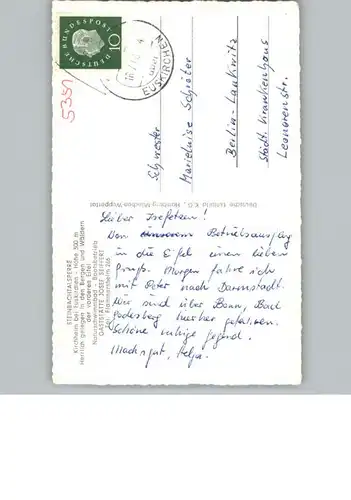 DEUTSCHE BUNDESPOST
10
EUSKIRCHEN
5351
Schwester
Marieluise Schröter
Berlin-Lankwitz
Städt. Krankenhaus
Leonorenstr.
STEINBACHTALSPERRE
Kirchheim bei Euskirchen - Höhe 300 m
Herrlich gelegen in den Bergen und Wäldern
der vorderen Eifel
Naturschwimmbad - Bootsbetrieb
GASTSTÄTTE JOSEF SEIFERT
Tel. Flamersheim 206
Von unserem Betriebsausflug
in die Eifel einen lieben
Gruß. Morgen fahre ich
mit Peter nach Darmstadt.
Wir sind über Bonn, Bad
Godesberg hierher gefahren.
Schöne ruhige Gegend.
Machs gut, Helga.